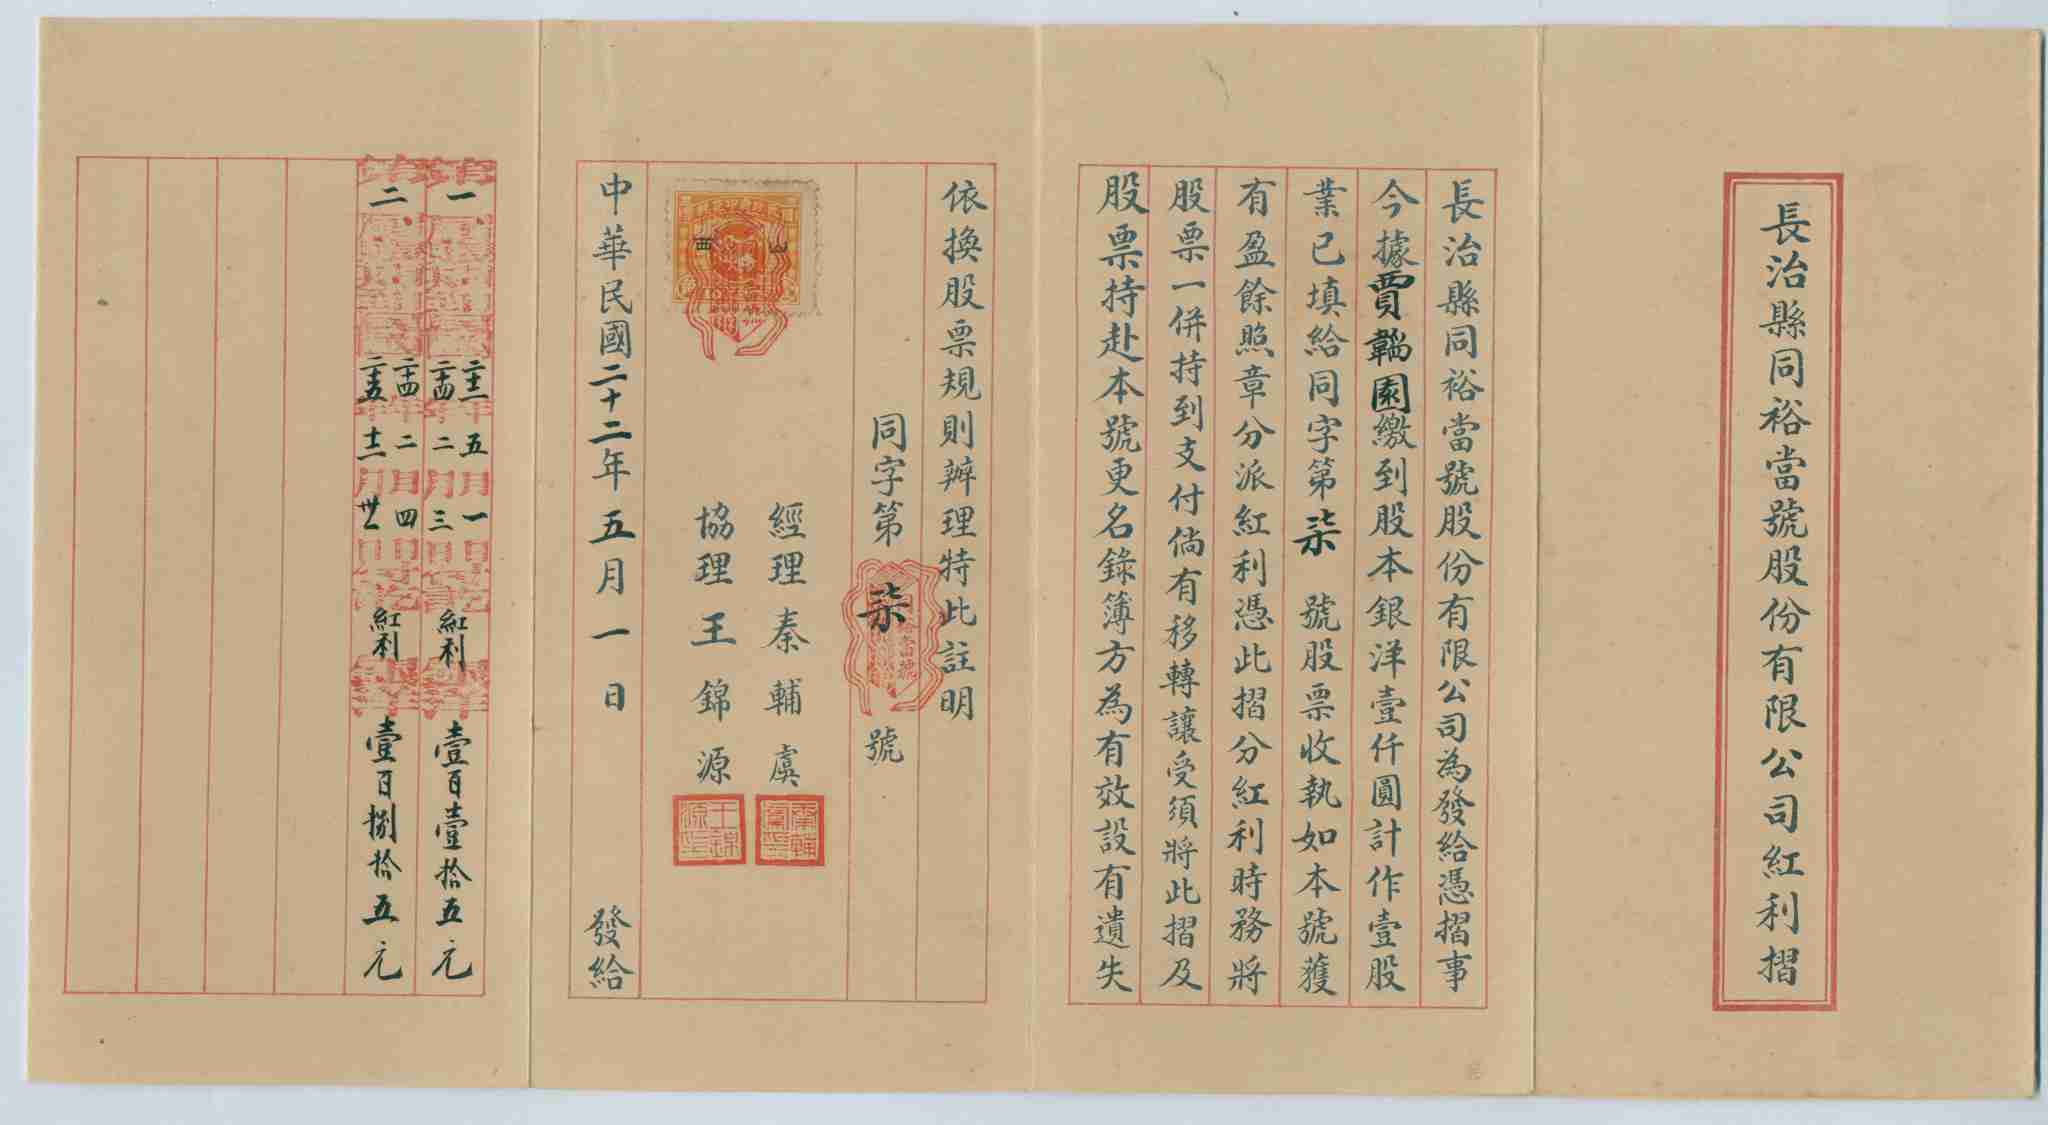 長治縣同裕當號股份有限公司紅利摺
長治縣同裕當號股份有限公司為發給憑摺事
今據賈韜園繳到股本銀洋壹仟圓計作壹股
業已填給同字第柒號股票收執如本號獲
有盈餘照章分派紅利憑此摺分紅利時務將
股票一併持到支付倘有移轉讓受須將此摺及
股票持赴本號更名錄簿方為有效設有遺失
依換股票規則辦理特此註明
同字第柒號
經理秦輔虞
協理王錦源
山西
王錦源
中華民國二十二年五月一日發給
一
五月一日
二月三日
紅利
壹百壹拾五元
二
二月四日
紅利
壹百捌拾五元